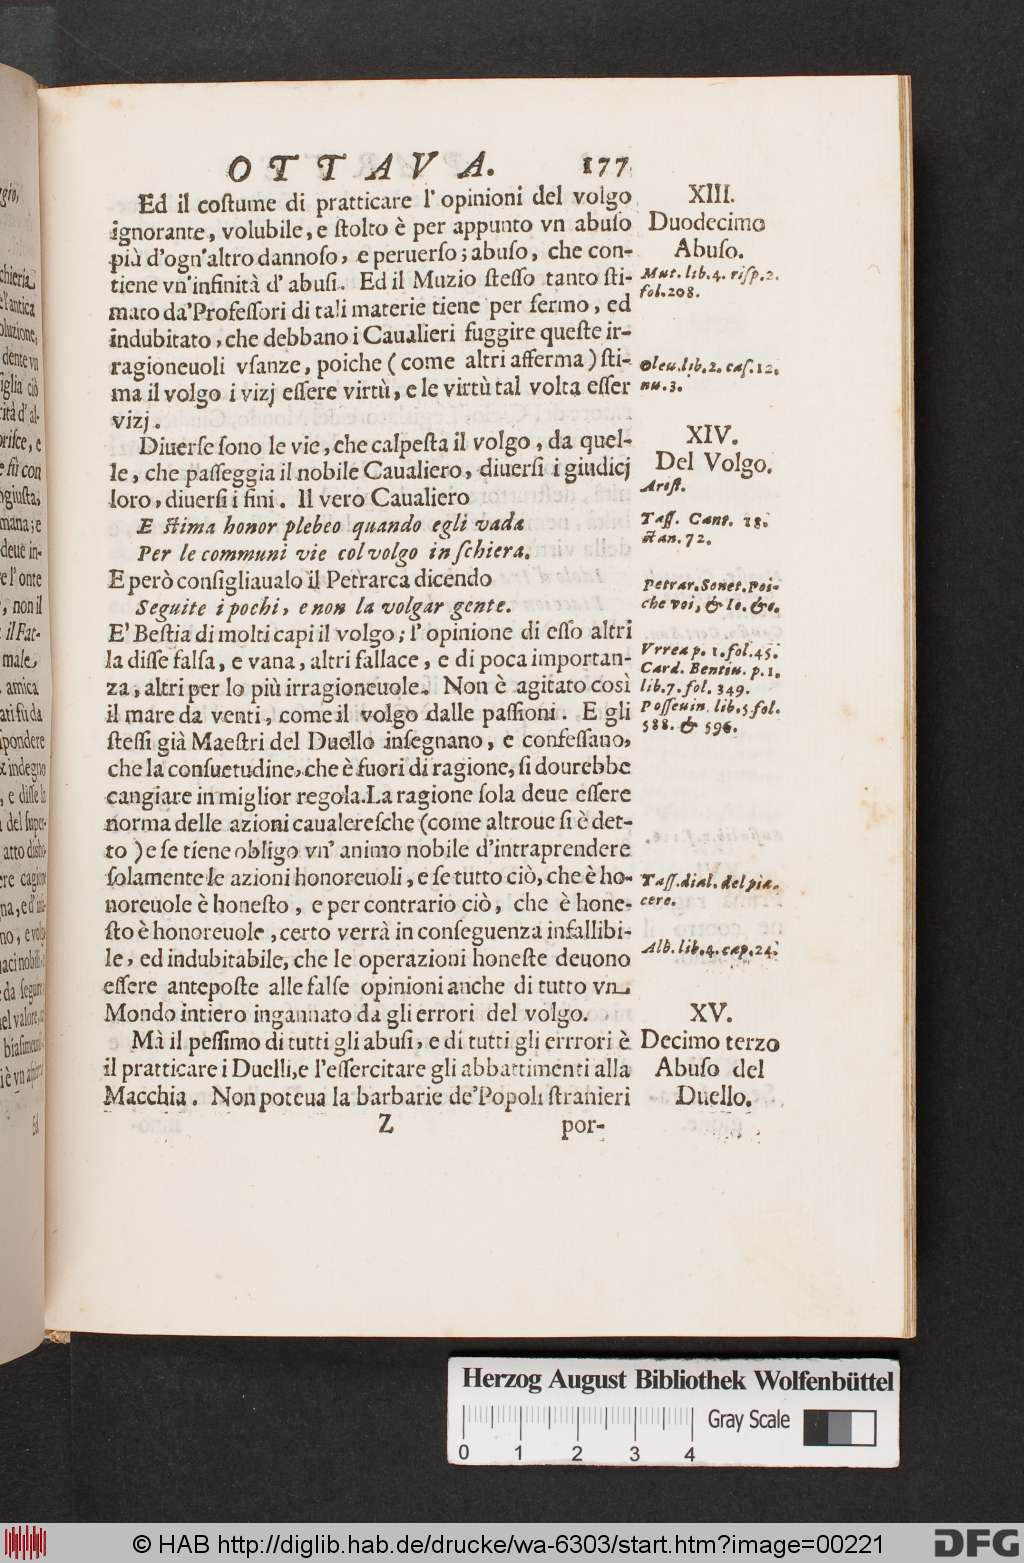 OTTAVA. 177
Ed il costume di pratticare l'opinioni del volgo
ignorante, volubile, e stolto è per appunto vn abuso
più d'ogn'altro dannoso, e peruerso; abuso, che con-
tiene vn'infinità d'abusi. Ed il Muzio stesso tanto sti-
mato da'Professori di tali materie tiene per fermo, ed
indubitato, che debbano i Caualieri fuggire queste ir-
ragioneuoli vsanze, poiche (come altri afferma) sti-
ma il volgo i vizj essere virtù, e le virtù tal volta esser
vizj.
XIII.
Duodecimo
Abuso.
Mut. lib. 4. risp. 2.
fol. 208.
Oleu. lib. 2. cas. 12.
nu. 3.
Diuerse sono le vie, che calpesta il volgo, da quel-
le, che passeggia il nobile Caualiero, diuersi i giudicj
loro, diuersi i fini. Il vero Caualiero
E stima honor plebeo quando egli vada
Per le communi vie col volgo in schiera.
E però consigliaualo il Petrarca dicendo
Seguite i pochi, e non la volgar gente.
E' Bestia di molti capi il volgo; l'opinione di esso altri
la disse falsa, e vana, altri fallace, e di poca importan-
za, altri per lo più irragioneuole. Non è agitato così
il mare da venti, come il volgo dalle passioni. E gli
stessi già Maestri del Duello insegnano, e confessano,
che la consuetudine, che è fuori di ragione, si dourebbe
cangiare in miglior regola. La ragione sola deue essere
norma delle azioni caualeresche (come altroue si è det-
to) e se tiene obligo vn' animo nobile d'intraprendere
solamente le azioni honoreuoli, e se tutto ciò, che è ho-
noreuole è honesto, e per contrario ciò, che è hone-
sto è honoreuole, certo verrà in conseguenza infallibi-
le, ed indubitabile, che le operazioni honeste deuono
essere anteposte alle false opinioni anche di tutto vn
Mondo intiero ingannato da gli errori del volgo.
XIV.
Del Volgo.
Arist.
Tass. Cant. 18.
stan. 72.
Petrar. Sonet. Poi-
che voi, & Io. &c.
Vrrea p. 1. fol. 45.
Card. Bentiu. p. 1.
lib. 7. fol. 349.
Posseuin. lib. 5. fol.
588. & 596.
Tass. dial. del pia-
cere.
Alb. lib. 4. cap. 24.
Mà il pessimo di tutti gli abusi, e di tutti gli errrori è
il pratticare i Duelli, e l'essercitare gli abbattimenti alla
Macchia. Non poteua la barbarie de'Popoli stranieri
XV.
Decimo terzo
Abuso del
Duello.
Z por-
Herzog August Bibliothek Wolfenbüttel
Gray Scale
0 1 2 3 4
© HAB http://diglib.hab.de/drucke/wa-6303/start.htm?image=00221
DFG